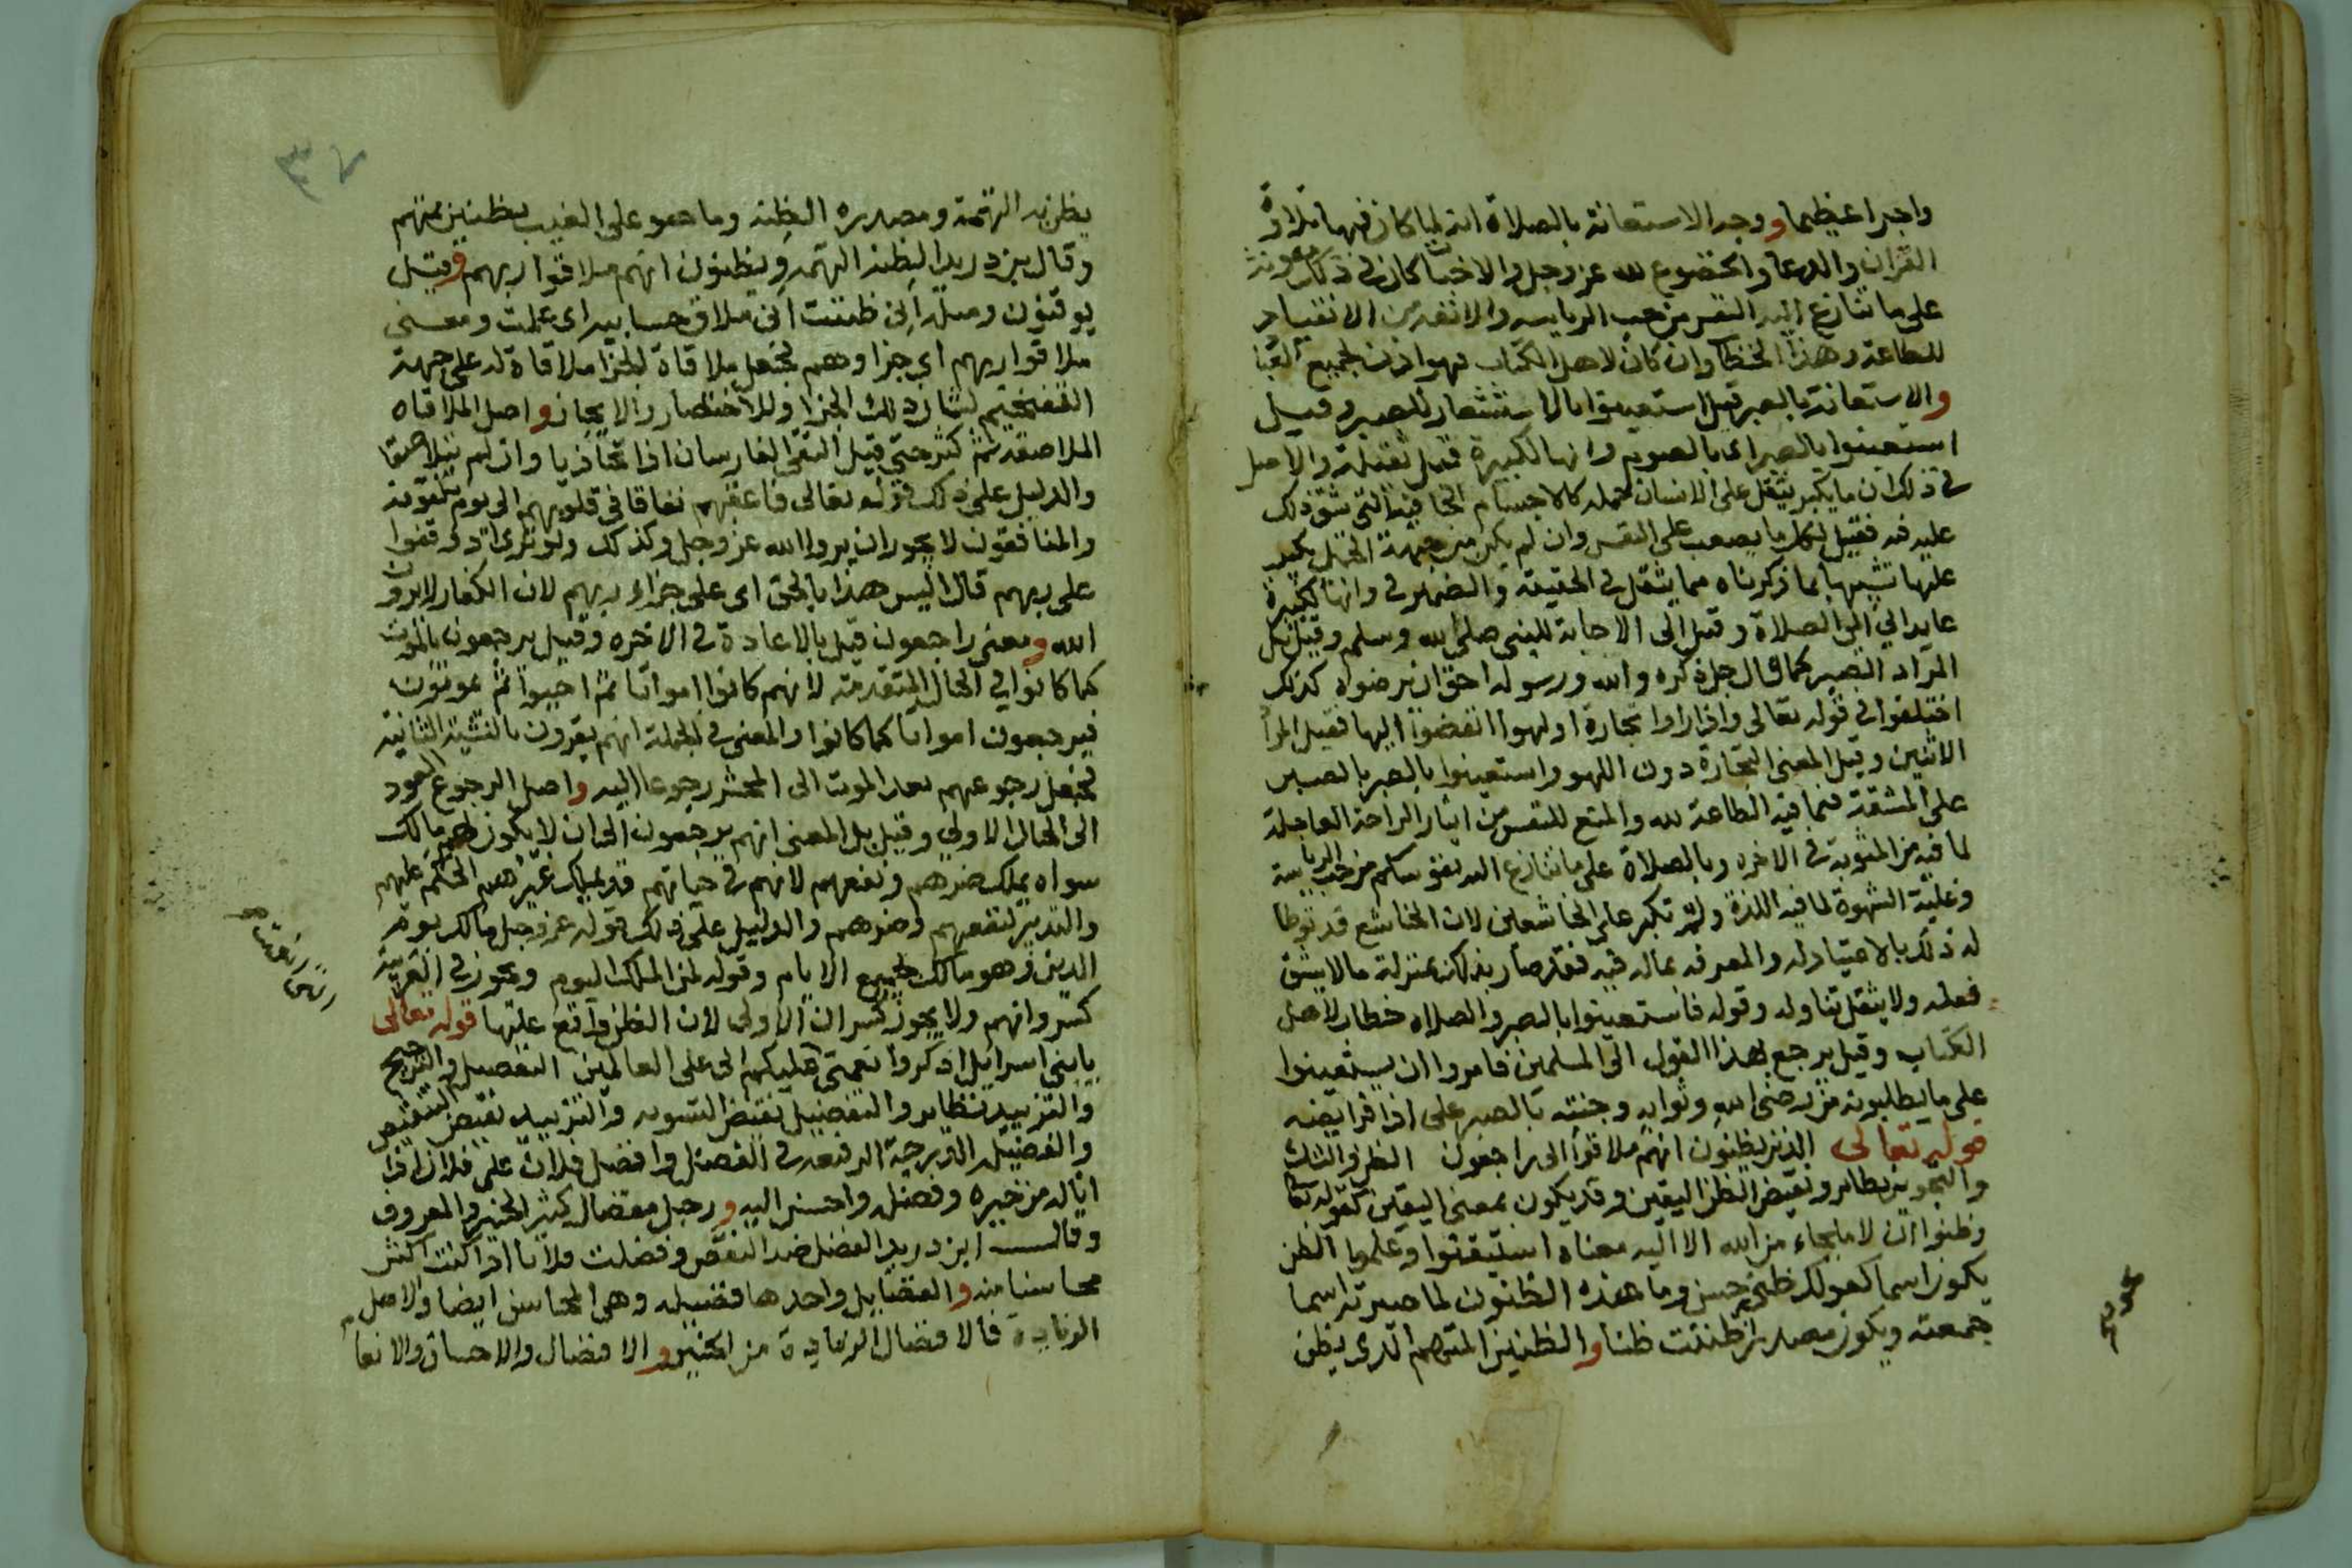 واجرا عظيما ووجه الاستعانة بالصلاة انه لما كان فيها تلاوة
القران والدعا والخضوع لله عز وجل والاخبات كان في ذلك معونة
على ما تنازع اليه النفس من حب الرياسه والانفه من الانقياد
للطاعة وهذا الخطا وان كان لاهل الكتاب فهو ادب لجميع العبا
والاستعانة بالصبر قيل استعينوا بالاستشعار للصبر وقيل
استعينوا بالصبر اى بالصوم وانها لكبيرة قيل ثقيلة والاصل
فى ذلك ان ما يكبر يثقل على الانسان حمله كالاجسام الجافية التى شق ذلك
عليه فيه فقيل لكل ما يصعب على النفس وان لم يكن من جهة الحمل يكبر
عليها تشبيها بما ذكرناه مما يثقل فى الحقيقة والضمير فى وانها لكبيرة
عايد الي الى الصلاة وقيل الى الاجابة للنبى صلى الله وسلم وقيل بل
المراد الصبر كما قال جل ذكره والله ورسوله احق ان يرضوه كذلك
اختلفوا فى قوله تعالى واذا راوا تجارة او لهوا انفضوا اليها فقيل المرا
الاثنين وقيل المعنى التجارة دون اللهو واستعينوا بالصبر بالصبر
على المشقة فيما فيه الطاعة لله والمنع للنفس من ايثار الراحة العاجلة
لما فيه من المثوبة فى الاخره وبالصلاة على ما تنازع اليه نفوسكم من حب الرياسة
وغلبة الشهوة لما فيه اللذة ولم تكبر على الخاشعين لان الخاشع قد توطا
له ذلك بالاعتياد له والمعرفه بماله فيه فقد صار بذلك بمنزلة ما لا يشق
فعله ولا يثقل تناوله وقوله فاستعينوا بالصبر والصلاه خطاب لاهل
الكتاب وقيل يرجع بهذا القول الى المسلمين فامروا ان يستعينوا
على ما يطلبونه من رضى الله وثوابه وجنته بالصبر على اذا فرايضه
قوله تعالى الذين يظنون انهم ملاقوا الى راجعون الظن والشك
والتجويز نظاير ونقيض الظن اليقين وقد يكون بمعنى اليقين كقوله تعا
وظنوا ان لا ملجاء من الله الا اليه معناه استيقنوا وعلموا الظن
يكون اسما كقولك ظنى حسن وما هذه الظنون لما صيرته اسما
جمعته ويكون مصدرا ظننت ظنا والظنين المتهم الذى يظن
يظن به التهمة ومصدره الظنه وما هو على الغيب بظنين بمتهم
وقال بن دريد الظنه التهمه ويظنون انهم ملاقوا ربهم وقيل
يوقنون ومثله انى ظننت انى ملاق حسابيه اى علمت ومعنى
ملاقوا ربهم اى جزا وهم فجعل ملاقاة الجزا ملاقاة له على جهة
التفخيم لشان ذلك الجزا وللاختصار والايجاز واصل الملاقاه
الملاصقه ثم كثر حتى قيل التقى الفارسان اذا تحاذيا وان لم يتلاصقا
والدليل على ذلك قوله تعالى فاعقبهم نفاقا فى قلوبهم الى يوم يلقونه
والمنافقون لا يجوز ان يروا الله عز وجل وكذلك ولو ترى اذ وقفوا
على ربهم قال اليس هذا بالحق اى على جزاء ربهم لان الكفار لا يرون
الله ومعنى راجعون قيل بالاعادة فى الاخره وقيل يرجعون بالموت
كما كانوا فى الحال المتقدمة لانهم كانوا امواتا ثم احيوا ثم يموتون
فيرجعون امواتا كما كانوا والمعنى فى الجملة انهم يقرون بالنشية الثانية
فجعل رجوعهم بعد الموت الى المحشر رجوعا اليه واصل الرجوع العود
الى الحال الاولى وقيل بل المعنى انهم يرجعون الى ان لا يكون لهم مالك
سواه يملك ضرهم ونفعهم لانهم فى حياتهم قد يملك غيرهم الحكم عليهم
والتدبير لنفعهم وضرهم والدليل على ذلك قوله عز وجل مالك يوم
الدين وهو مالك جميع الايام وقوله لمن الملك اليوم ويجوز فى العربية
كسر وانهم ولا يجوز كسر ان الاولى لان الظن واقع عليها قوله تعالى
يا بنى اسرايل اذكروا نعمتى عليكم الى على العالمين التفضيل والترجيح
والتزييد نظاير والتفضيل نقيض التسويه والتزييد نقيض التنقيص
والفضيله الدرجة الرفيعه فى الفضل وافضل فلان على فلان اذا
اناله من خيره وفضله واحسن اليه ورجل مفضال كثير الخير والمعروف
وقال ابن دريد الفضل ضد النقص وفضلت فلانا اذا كنت اكثر
محاسنا منه والفضايل واحدها فضيله وهى المحاسن ايضا والاصل
الزيادة فالافضال الزيادة من الخير والافضال والاحسان والانعا